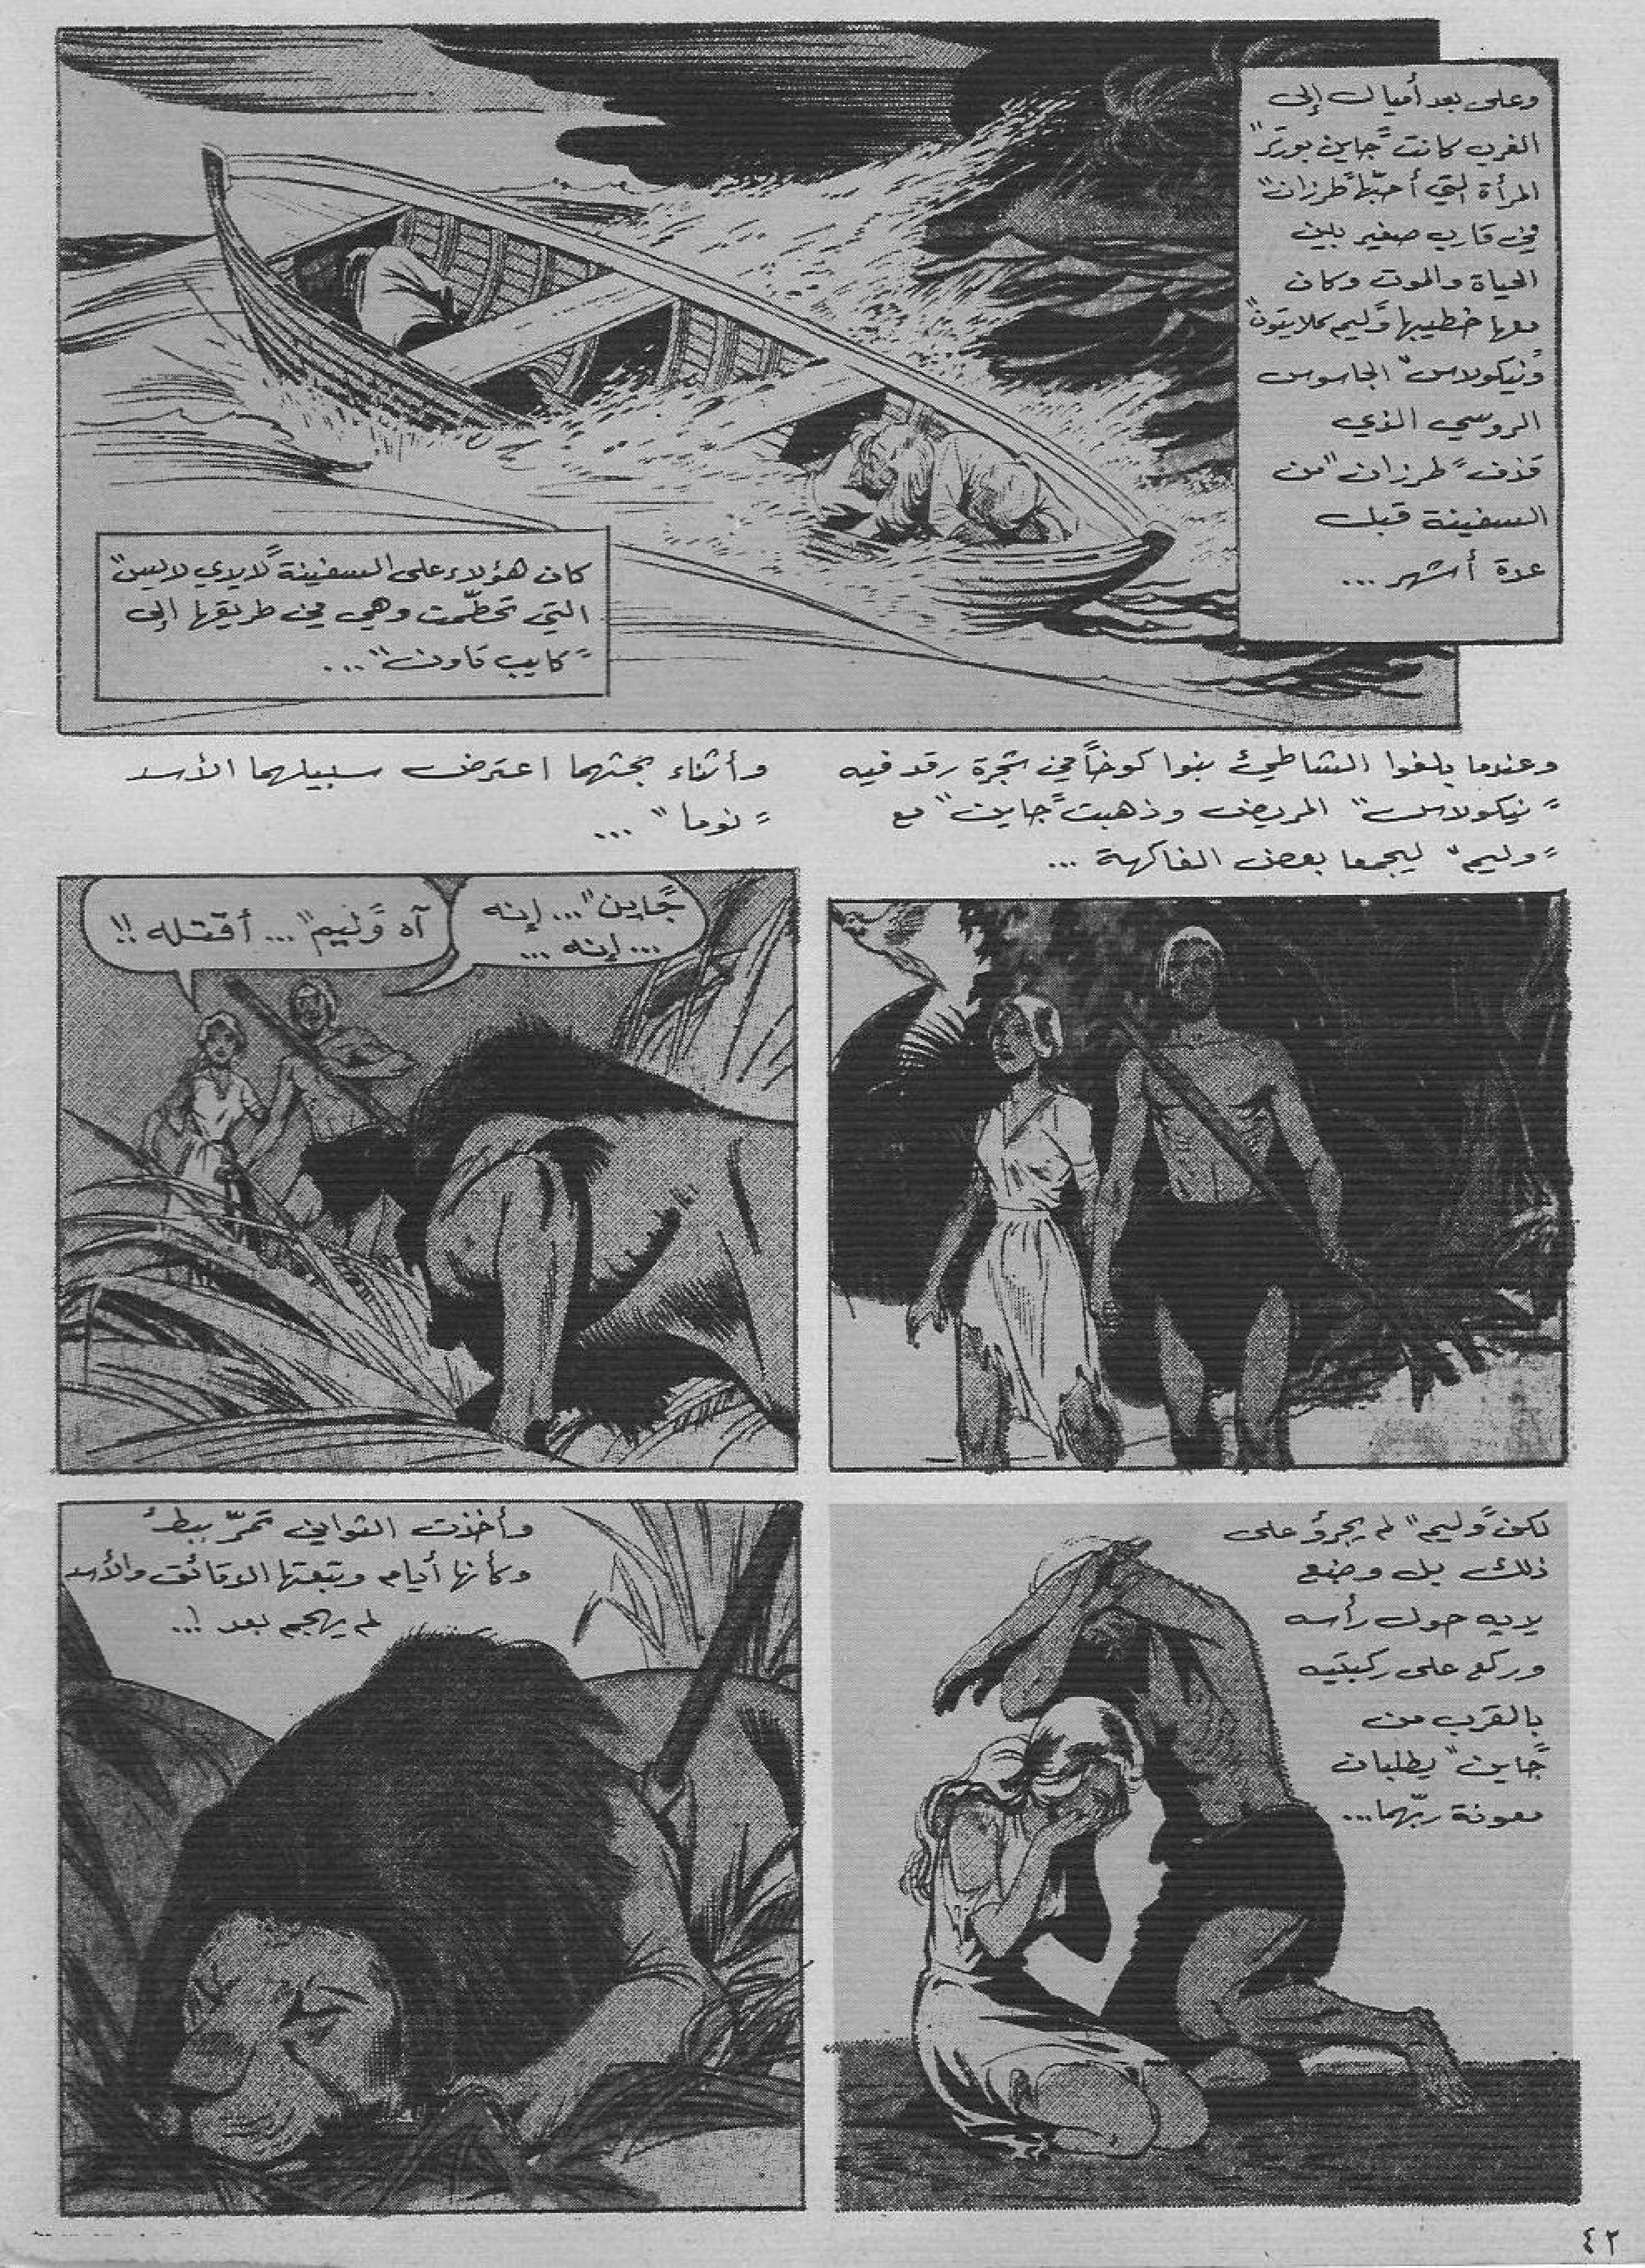 وعلى بعد أميال إلى
الغرب كانت "جاين بورتر"
المرأة التي أحبّها "طرزان"
في قارب صغير بين
الحياة والموت وكان
معها خطيبها "وليم كلايتون"
و"نيكولاس" الجاسوس
الروسي الذي
قذف "طرزان" من
السفينة قبل
عدة أشهر...
كان هؤلاء على السفينة "لايدي لاليس"
التي تحطّمت وهي في طريقها إلى
"كايب تاون"...
وعندما بلغوا الشاطئ بنوا كوخاً في شجرة رقد فيه
"نيكولاس" المريض وذهبت "جاين" مع
"وليم" ليجمعا بعض الفاكهة ...
وأثناء بحثهما اعترض سبيلهما الأسد
"نوما" ...
"جاين"... إنه
... إنه ...
آه "وليم"... أقتله !!
لكن "وليم" لم يجرؤ على
ذلك بل وضع
يديه حول رأسه
وركع على ركبتيه
بالقرب من
"جاين" يطلبان
معونة ربّهما...
وأخذت الثواني تمرّ ببطئ
وكأنها أيام وتبعتها الدقائق والأسد
لم يهجم بعد !..
٤٢